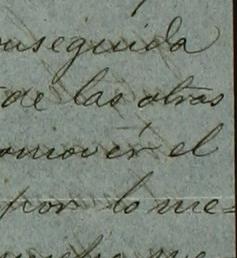 onseguida
de las otras
omover el
por lo me=